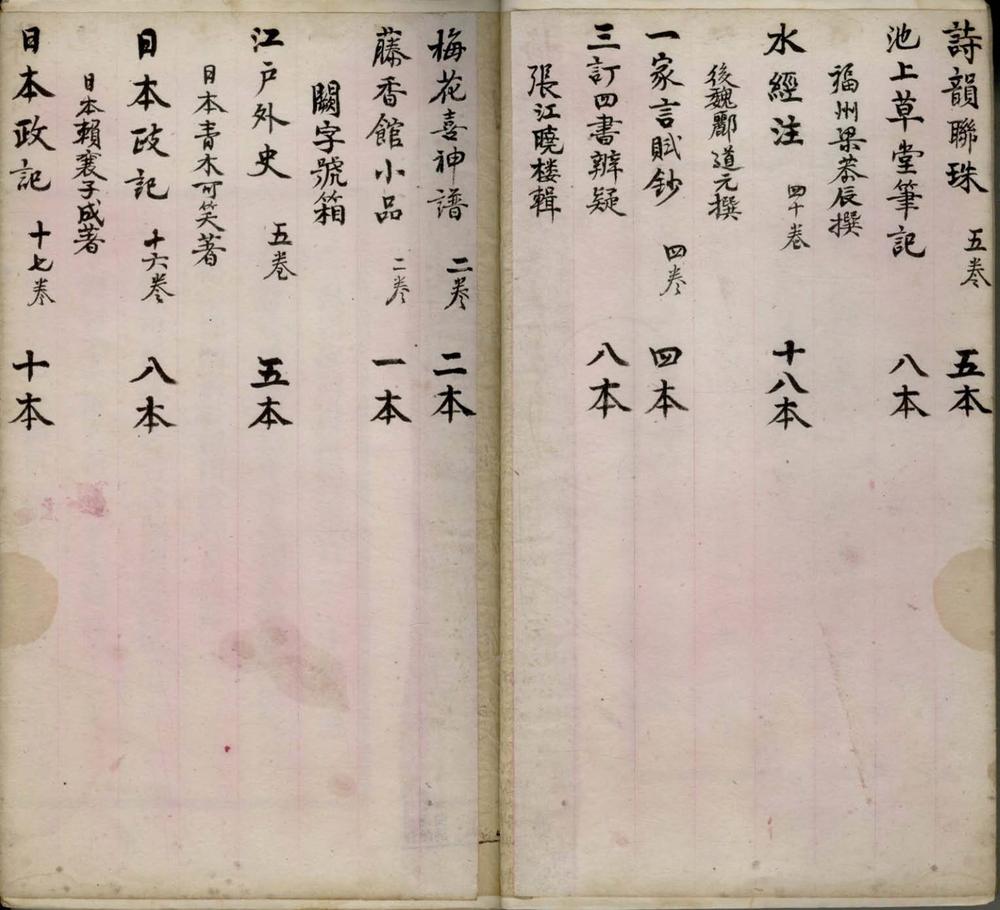 詩韻聯珠 五卷 五本
池上草堂筆記 八本
福州梁恭辰撰
水經注 四十卷 十八本
後魏酈道元撰
一家言賦鈔 四卷 四本
三訂四書辨疑 八本
張江曉楼輯
梅花喜神譜 二卷 二本
藤香館小品 二卷 一本
闕字號箱
江戶外史 五卷 五本
日本青木可笑著
日本政記 十六卷 八本
日本賴襄子成著
日本政記 十七卷 十本